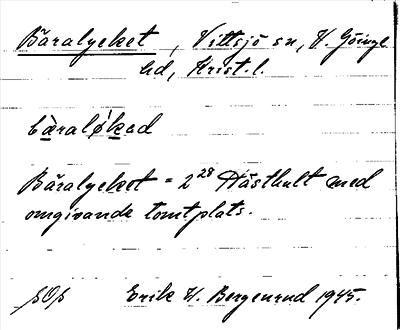 Båralycket, Vittsjö sn, V. Göinge
hd, Krist. l.
bàralø̀kad
Båralycket = 2²⁸ Hästhult med
omgivande tomtplats.
Erik H. Bergenrud 1945.